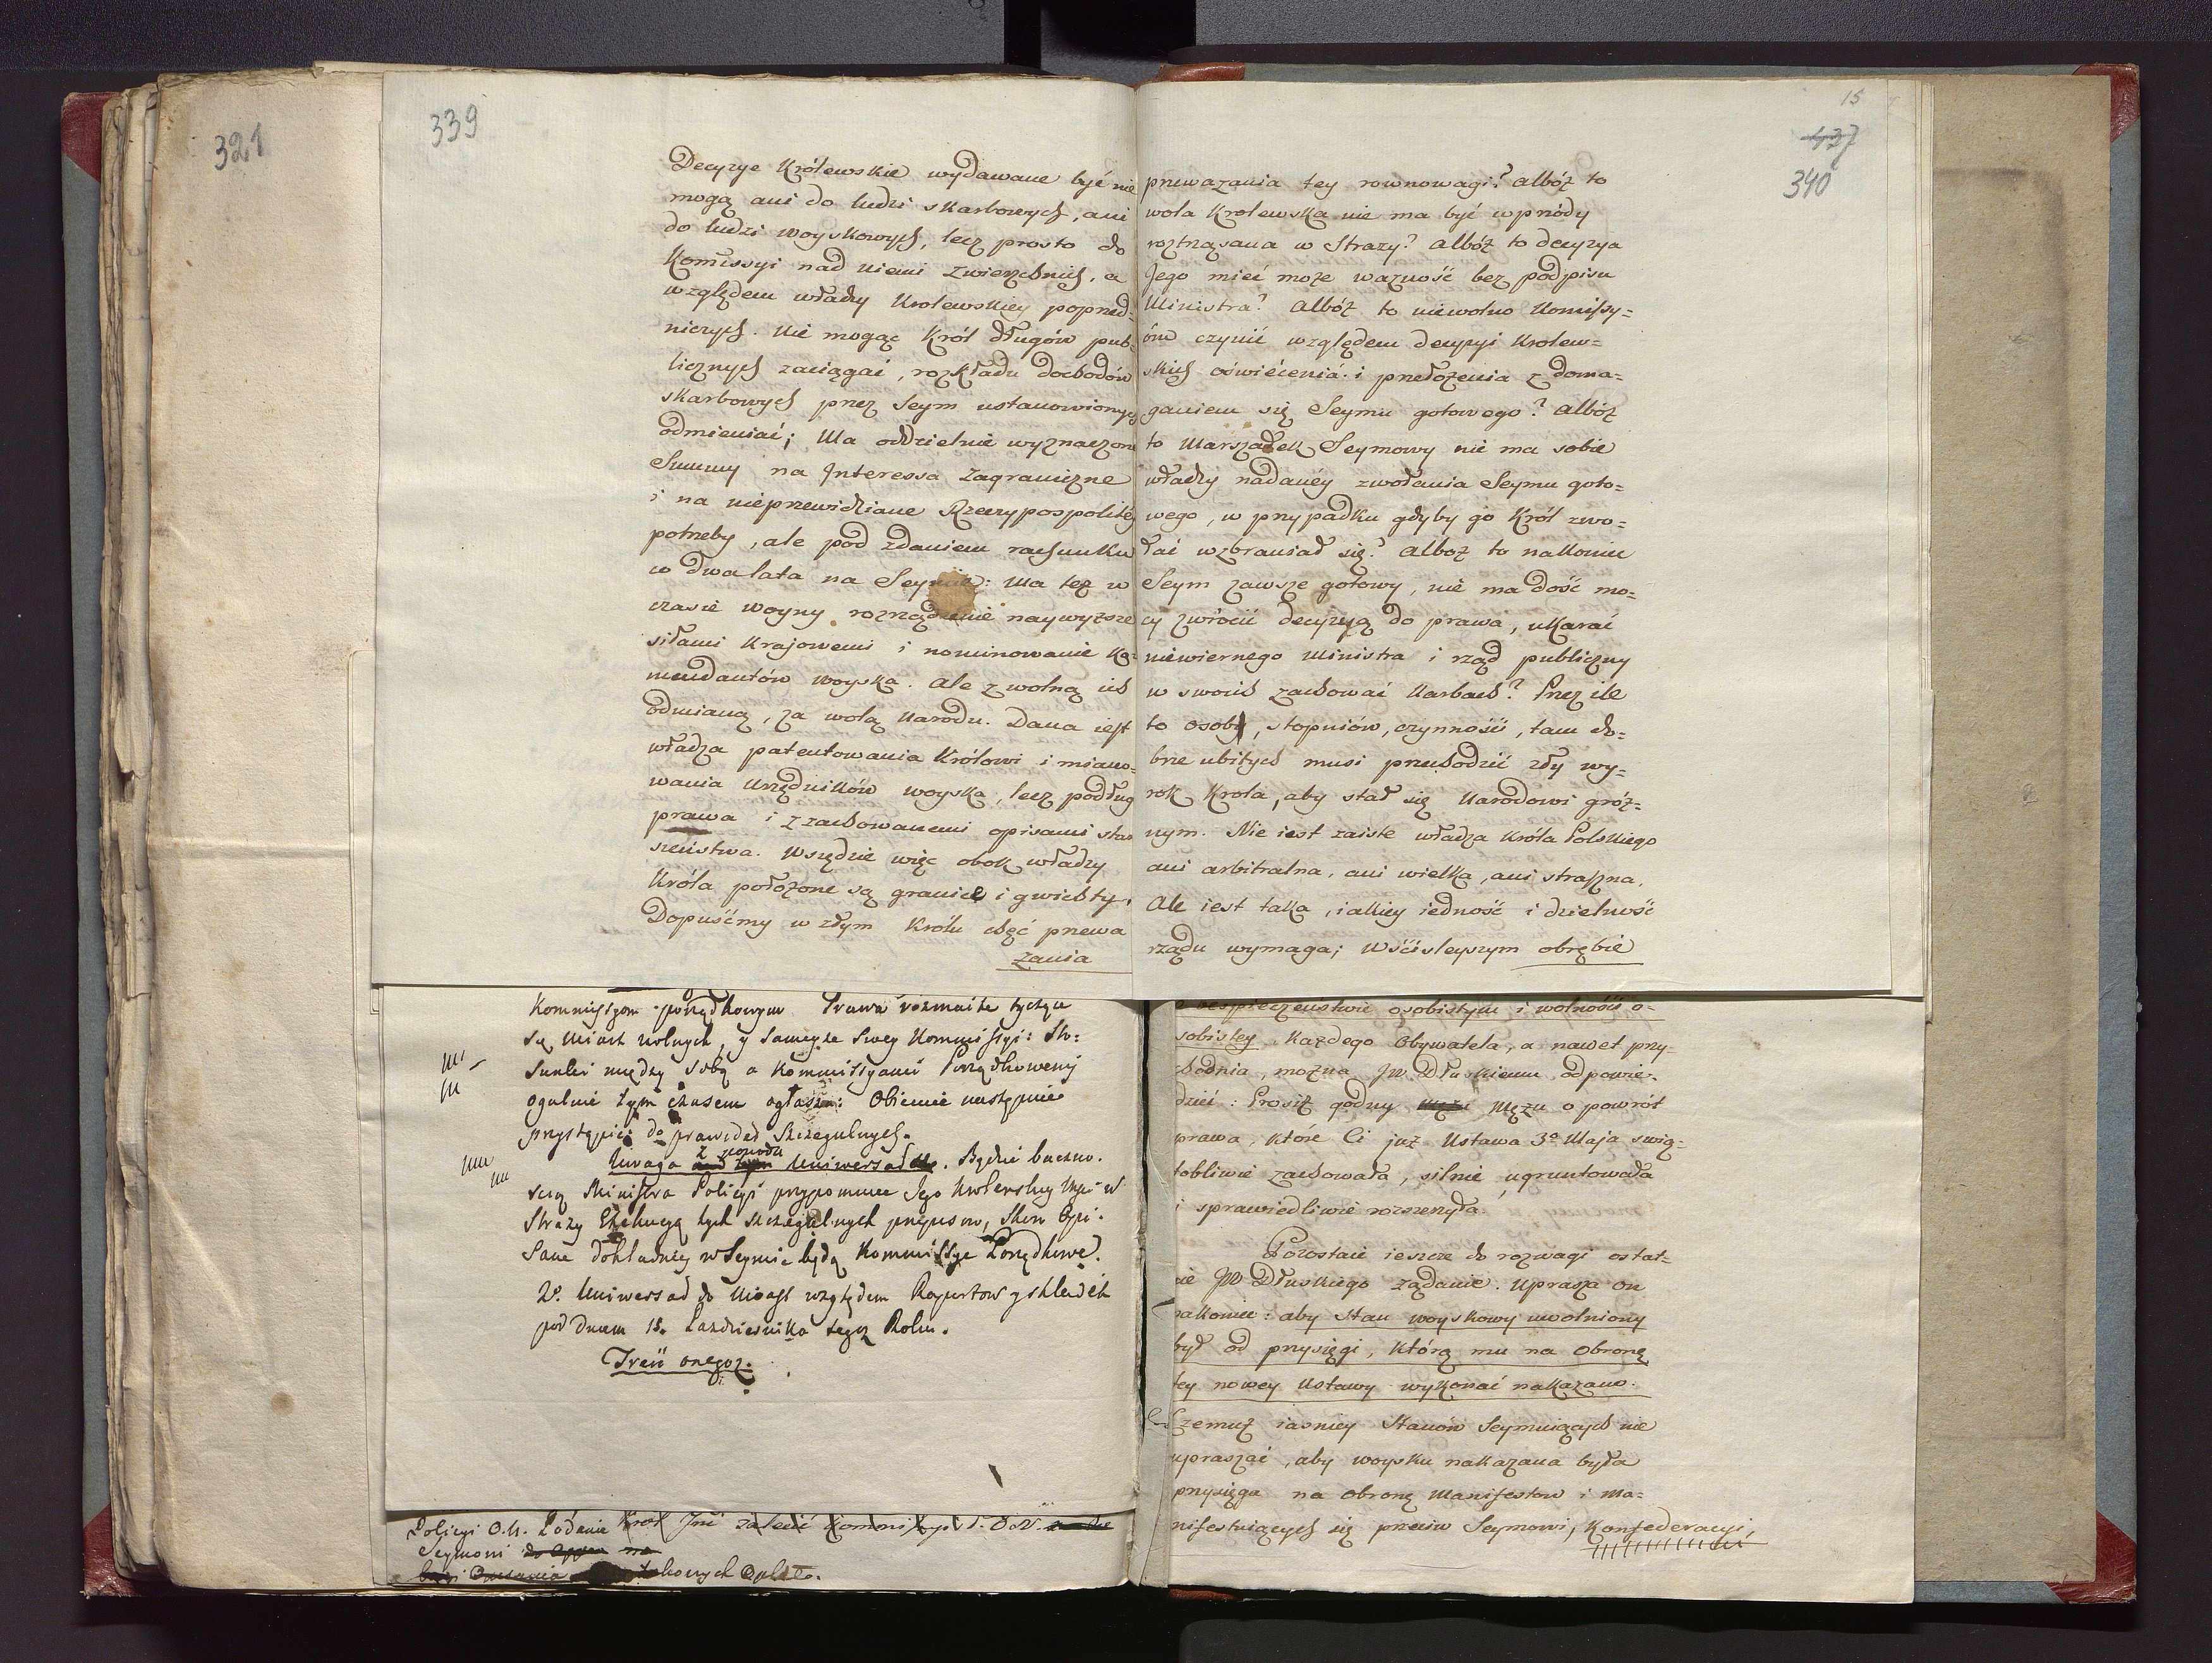 321
339
Decyzye Królewskie wydawane być nie
mogą ani do ludzi skarbowych, ani
do ludzi woyskowych, lecz prosto do
Komissyi nad niemi zwierzchnich, a
względem władzy Krolewskiey poprzed=
niczych. Nie mogąc Król długów pub=
licznych zaciągać, rozkładu dochodów
skarbowych przez Seym ustanowionych
odmieniać; Ma oddzielnie wyznaczone
Summy na Interessa zagraniczne
i na nieprzewidziane Rzeczypospolitéy
potrzeby, ale pod zdaniem rachunku
w dwa lata na Seymie: Ma też w
czasie woyny rozrządzenie naywyższe
siłami krajowemi i nominowanie Ko=
mendantów woyska. Ale z wolną ich
odmianą, za wolą Narodu. Dana iest
władza patentowania Królowi i miano=
wania Urzędników woyska, lecz podług
prawa i z zachowanemi opisami star
szeństwa. Wszędzie więc obok władzy
Króla położone są granice i gwichty.
Dopuśćmy w złym Królu chęć przewa
zania
15
437
340
przewazania tey rownowagi? Albóż to
wola Krolewska nie ma być wprzódy
roztrząsana w Strazy? Albóż to decyzya
Jego mieć może wazność bez podpisu
Ministra? Albóż to niewolno Komissy=
óm czynić względem decyzyi Krolew=
skich oświécenia i przełożenia z doma=
ganiem się Seymu gotowego? Albóż
to Marszałek Seymowy nie ma sobie
władzy nadanéy zwołania Seymu goto=
wego, w przypadku gdyby go Król zwo=
łać wzbraniał się? Alboż to nakoniec
Seym zawsze gotowy, nie ma dość mo=
cy zwrócić decyzyą do prawa, ukarać
niewiernego Ministra i rząd publiczny
w swoich zachować karbach? Przez ile
to osob, stopniów, czynności, tam do=
brze ubitych musi przechodzić zły wy=
rok Krola, aby stał się Narodowi gróź=
nym. Nie iest zaiste władza Króla Polskiego
ani arbitralna, ani wielka, ani straszna.
Ale iest taka, iakiey iedność i dzielność
rządu wymaga; W ściśleyszym obrębie
Kommissyom porządkowym Prawa rozmaite tyczące
się Miast wolnych, y sameyże swey Kommissyi: Sto:
sunki między sobą a Kommissyami Porządkowemi
ogulnie tym czasem ogłasza: Obiecuie następnie
przystąpić do prawideł szczegulnych.
Uwaga z powodu Uniwersału. Będzie baczno.
scią Ministra Policyi przypomniec Jego Krolewskiey Mci w
Strazy Exekucyą tych szczegulnych przepisow, skoro Opi.
sane dokładniey w Seymie będą Kommissye Porządkowe.
2o. Uniwersał do Miast względem Raportow y składek
pod dniem 18. Pazdziernika tegoż Roku.
Treść onegoż.
Policyi O.N. Podanie Krol Jmć zalecić Kommissyi P. O.N.
Seymowi
e bespieczeństwie osobistym i wolności o=
sobistey każdego Obywatela, a nawet przy=
chodnia, można JW Dłuskiemu odpowie=
dzieć: Prosisz godny Mężu o powrót
prawa, które Ci już Ustawa 3o Maja świą=
tobliwie zachowała, silnie ugruntowała
i sprawiedliwie rozszerzyła.
Pozostaie ieszcze do rozwagi ostat=
nie JW Dłuskiego ządanie. Uprasza on
nakoniec: aby Stan woyskowy uwolniony
był od przysięgi, którą mu na obronę
tey nowey Ustawy wykonać nakazano.
Czemuż iasniey Stanów Seymuiących nie
upraszać, aby woysku nakazana była
przysięga na obronę Manifestow i ma=
nifestuiących się przeciw Seymowi, Konfederacyi,